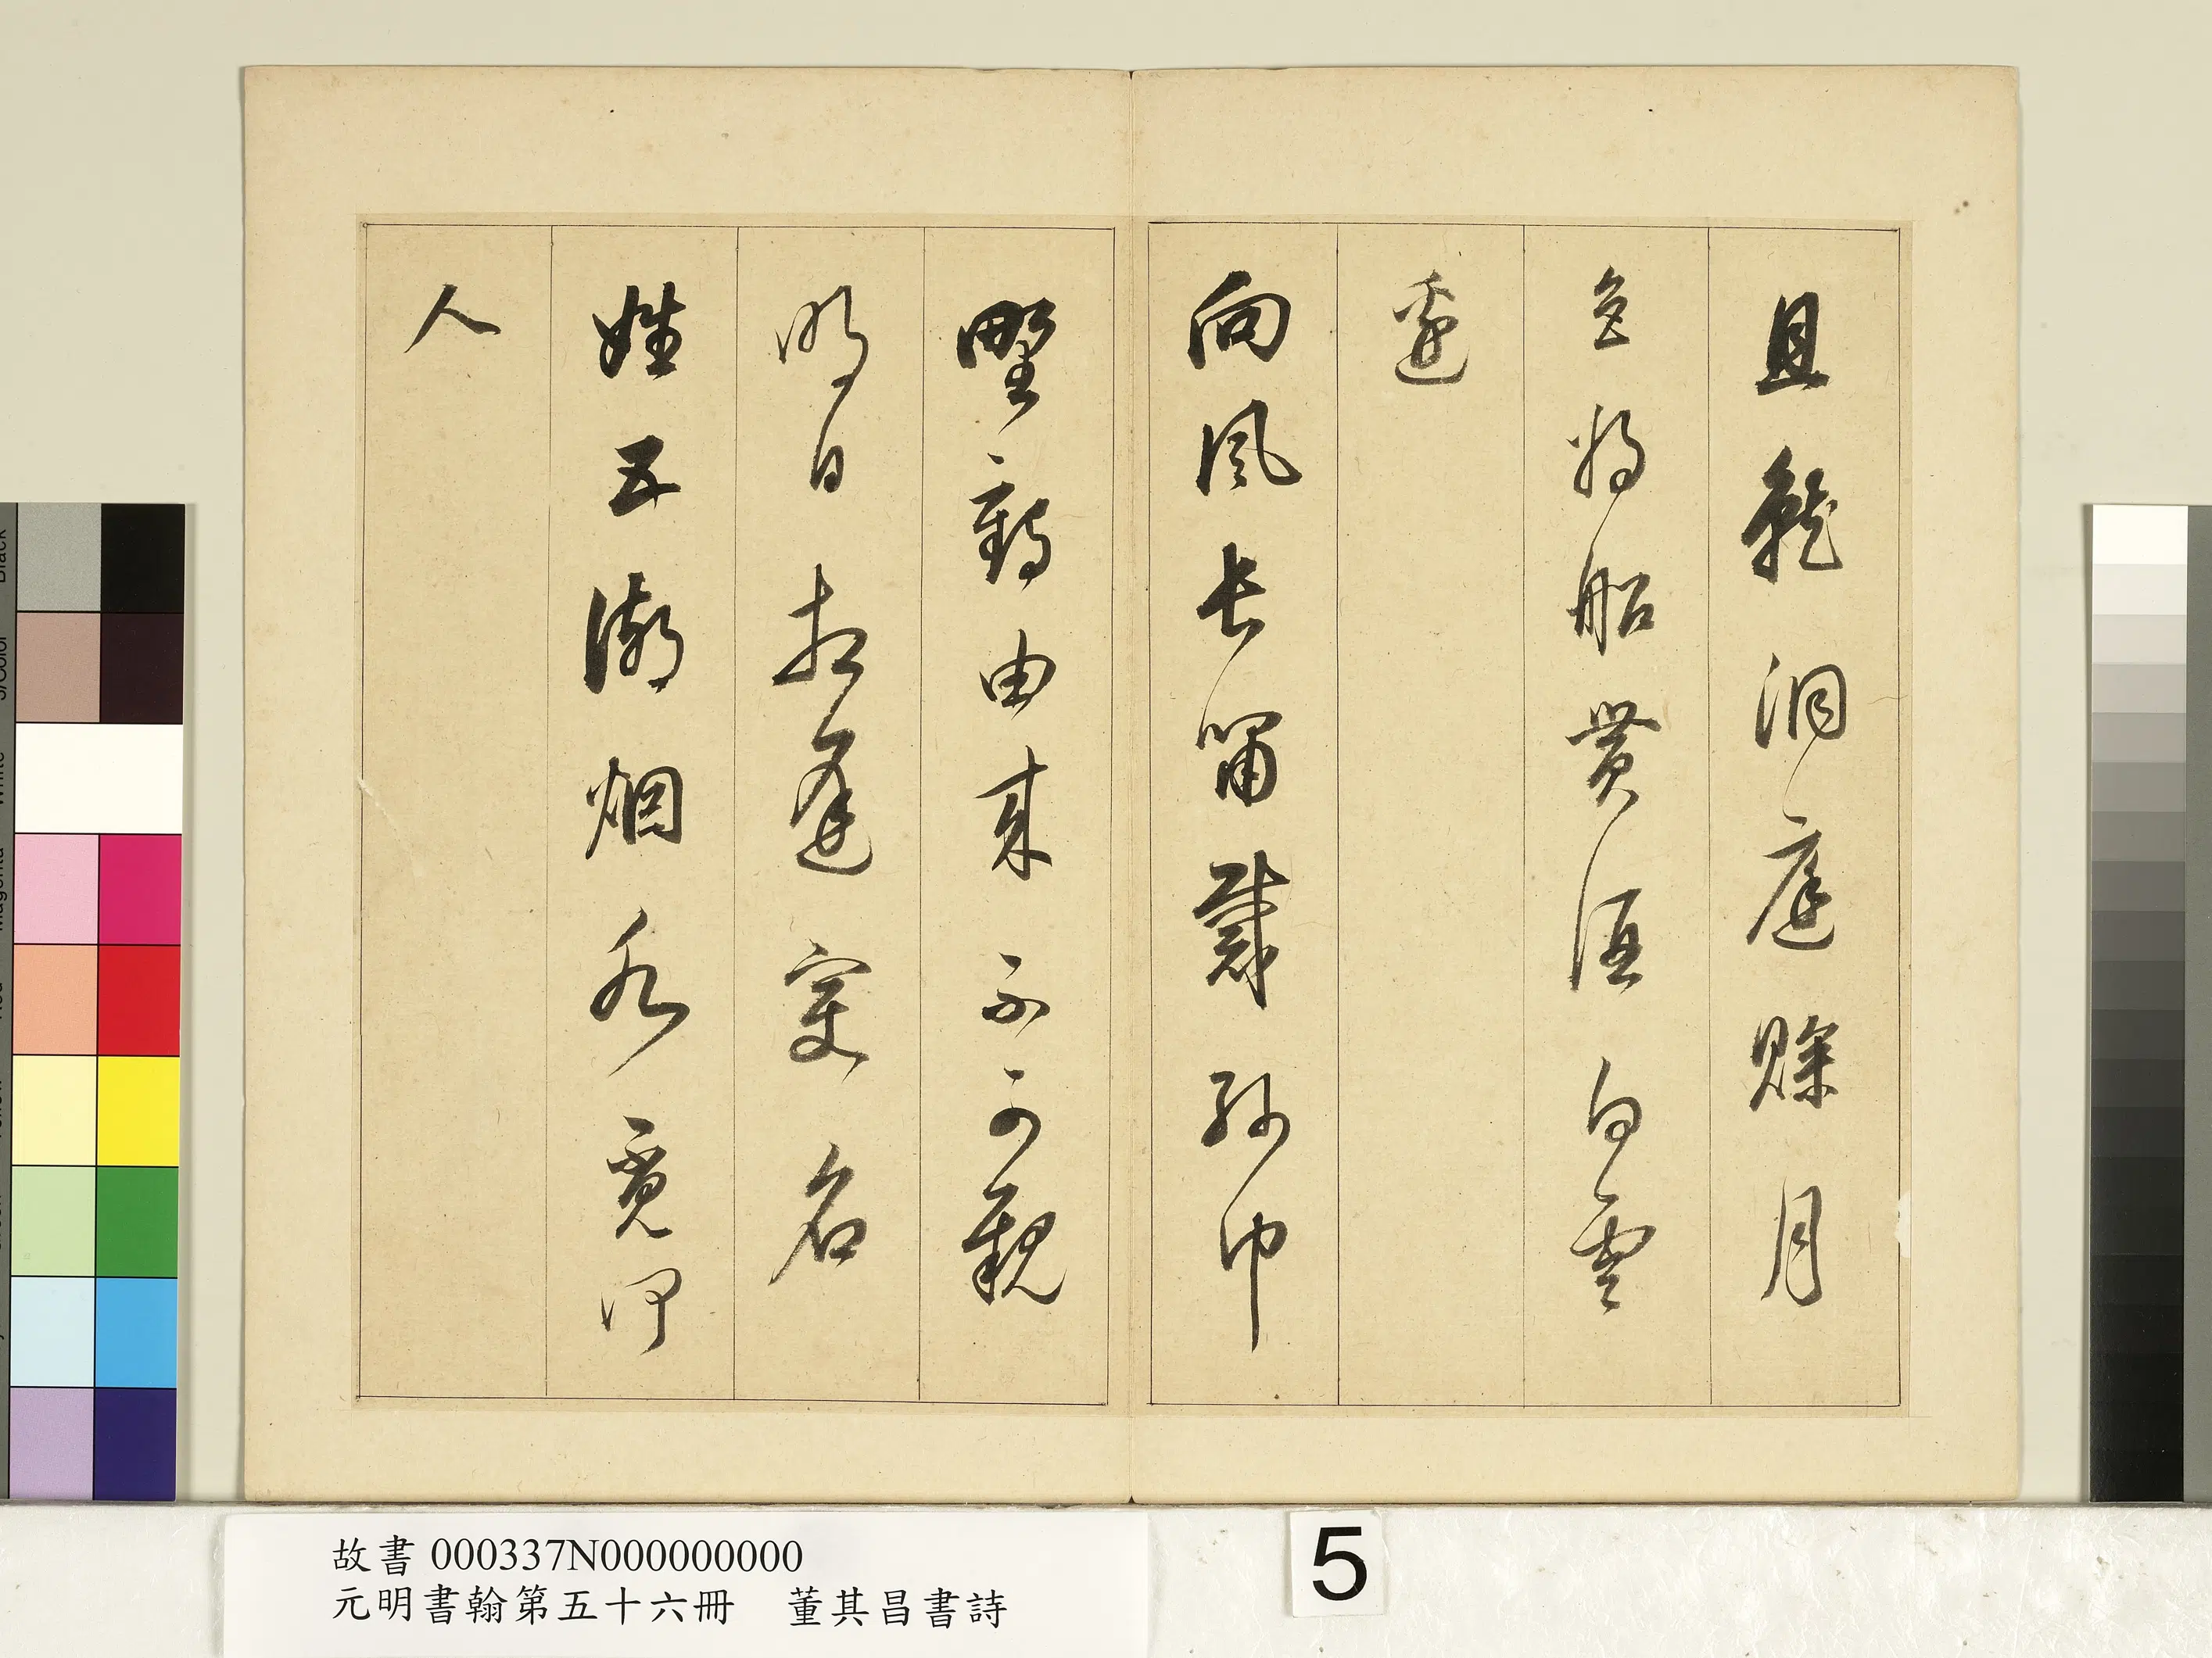 且就洞庭賒月
色將船貰酒白雲
邊
向風長嘯戴紗巾
野鶴由來不可親
明日相逢變名
姓五湖烟水覓何
人
故書 000337N000000000
元明書翰第五十六冊　董其昌書詩
5